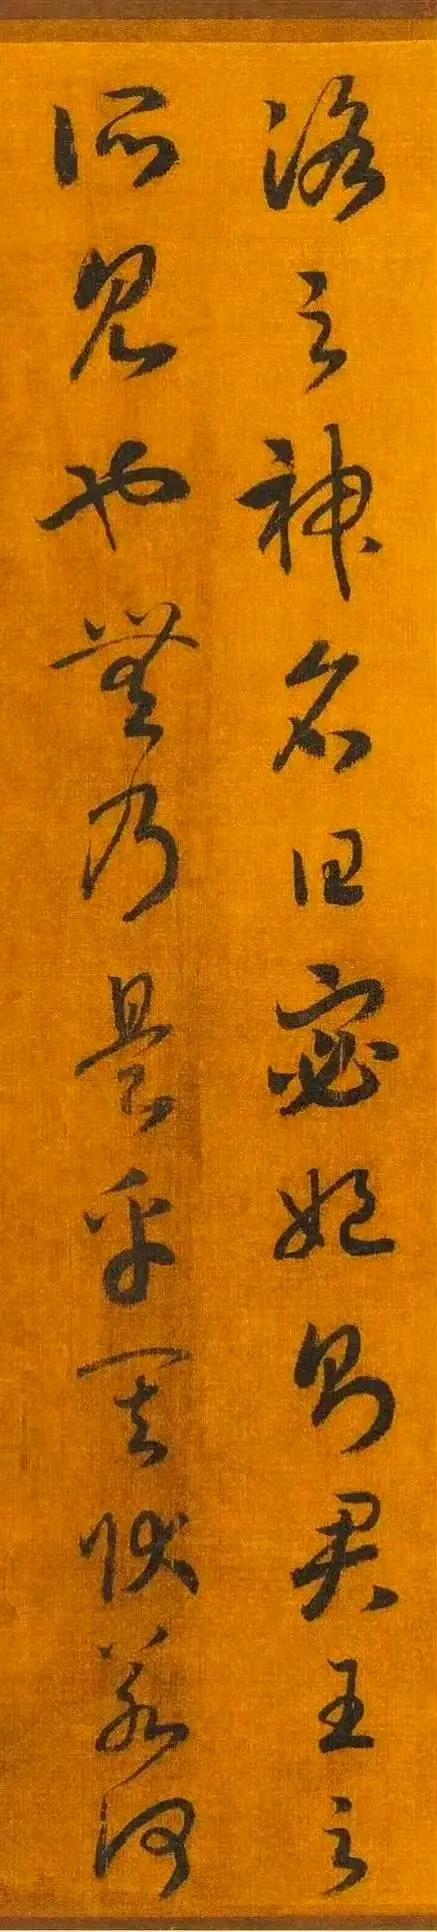 洛之神名曰宓妃则君王之
所见也無乃是乎其状若何